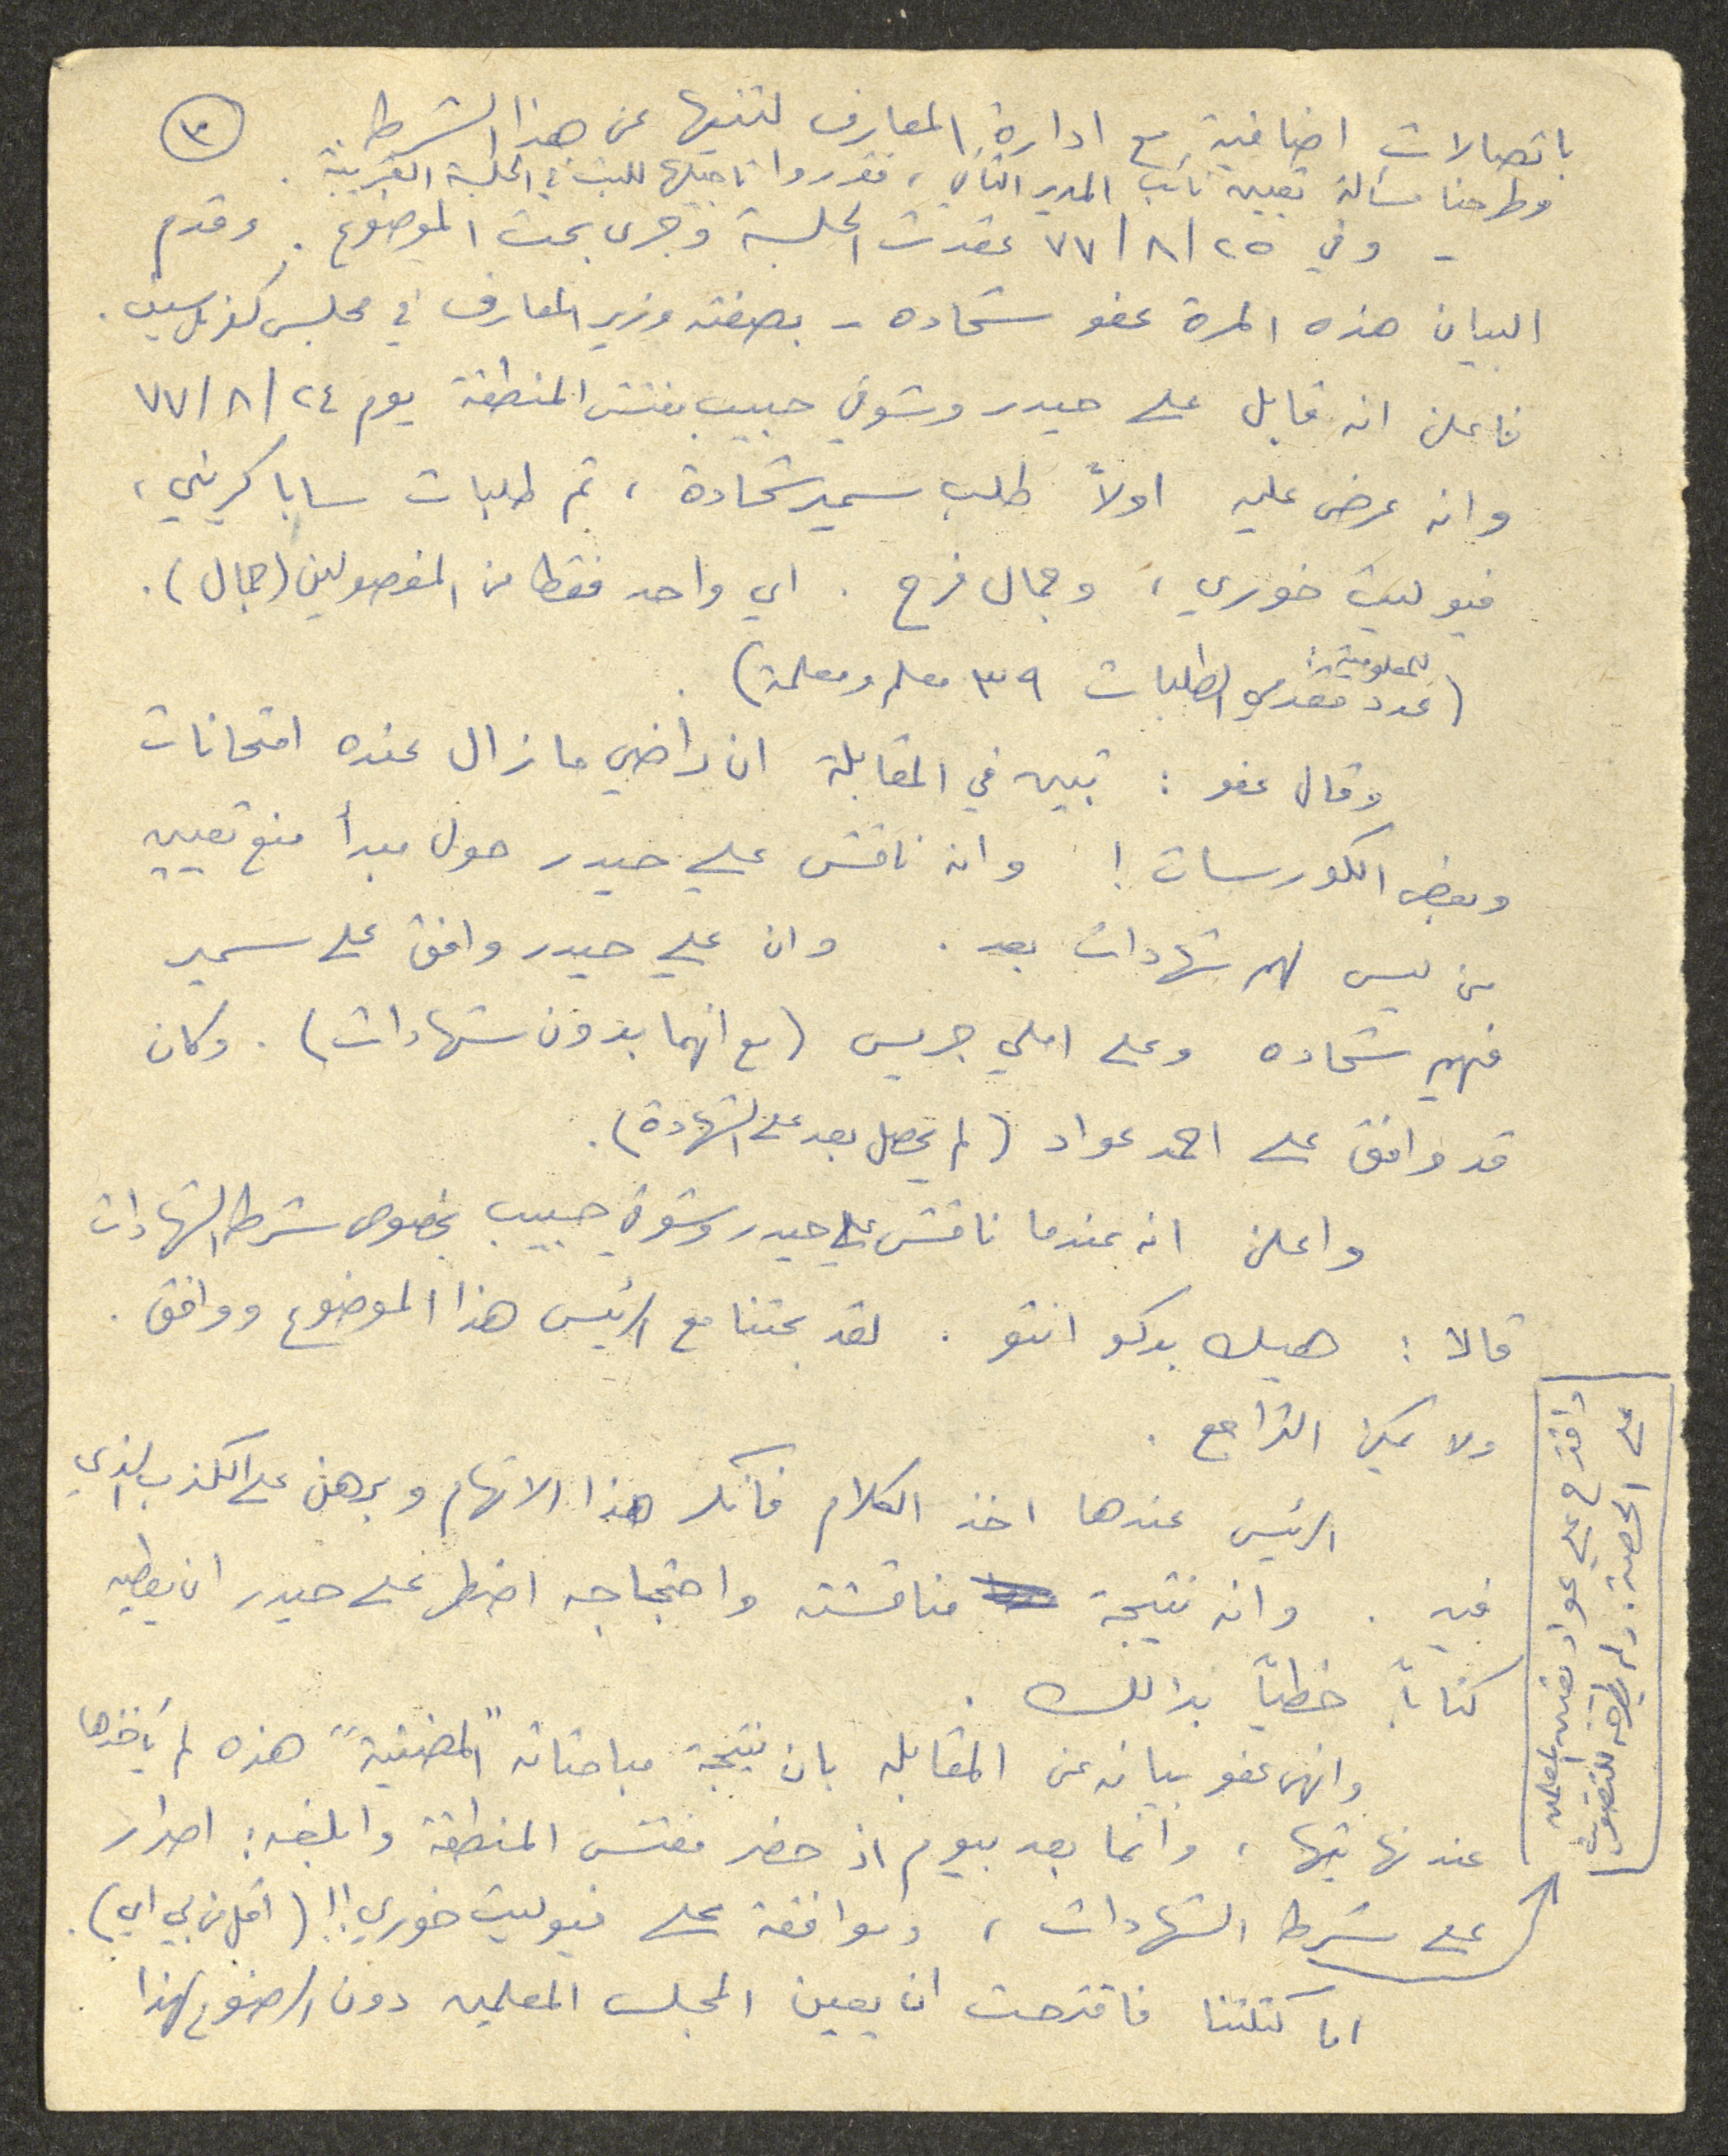 ٣
باتصالات اضافية مع ادارة المعارف لتثنيها عن هذا الشرط.
وطرحنا مسألة تعيين نائب المدير الثاني، فقرروا تاجيلها للبت في الجلسة القريبة.
- وفي ٢٥/٨/٧٧ عقدت الجلسة وجرى بحث الموضوع. وقدم
البيان هذه المرة عفو شحاده - بصفته وزير المعارف في مجلس كفرياسيف.
فاعلن انه قابل علي حيدر وشوقي حبيب مفتش المنطقة يوم ٢٤/٨/٧٧
وانه عرض عليه اولاً طلب سمير شحادة، ثم طلبات سابا كريني،
فيوليت خوري، وجمال فرح. اي واحد فقط من المفصولين (جمال).
(للمعلومية: عدد مقدمي الطلبات ٣٩ معلم ومعلمة).
وقال عفو: تبين في المقابلة ان راضي ما زال عنده امتحانات
وبعض الكورسات! وانه ناقش علي حيدر حول مبدأ منع تعيين
من ليس لهم شهادات بعد. وان علي حيدر وافق على سمير
فهيم شحاده وعلى املي جريس (مع انهما بدون شهادات). وكان
قد وافق على احمد عواد (لم يحصل بعد على الشهادة).
واعلن انه عندما ناقش علي حيدر وشوقي حبيب بخصوص شرط الشهادات
قالا: هيك بدكو انتو. لقد بحثنا مع الرئيس هذا الموضوع ووافق.
ولا يمكن التراجع.
الرئيس عندها اخذ الكلام فأنكر هذا الاتهام وبرهن على الكذب الذي
فيه. وانه نتيجة مناقشته واحتجاجه اضطر علي حيدر ان يعطيه
كتاباً خطيّاً بذالك.
وانهى عفو بيانه عن المقابله بان نتيجة مباحثاته "المضنية" هذه لم يأخذها
عند نهايتها، وانما بعد بيوم اذ حضر مفتش المنطقة وابلغه: اصرار
على شرط الشهادات، وموافقة على فيوليت خوري!! (اقل من بي اي).
اما كتلتنا فاقترحت ان يعين المجلس المعلمين دون الرضوخ لهذا
واقترح علي عواد تعيين المعلمين
على الحصة. ولم يطرحه للتصويت